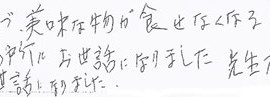 で、美味な物が食せなくなる
お世話になりました 先生
世話になりました.